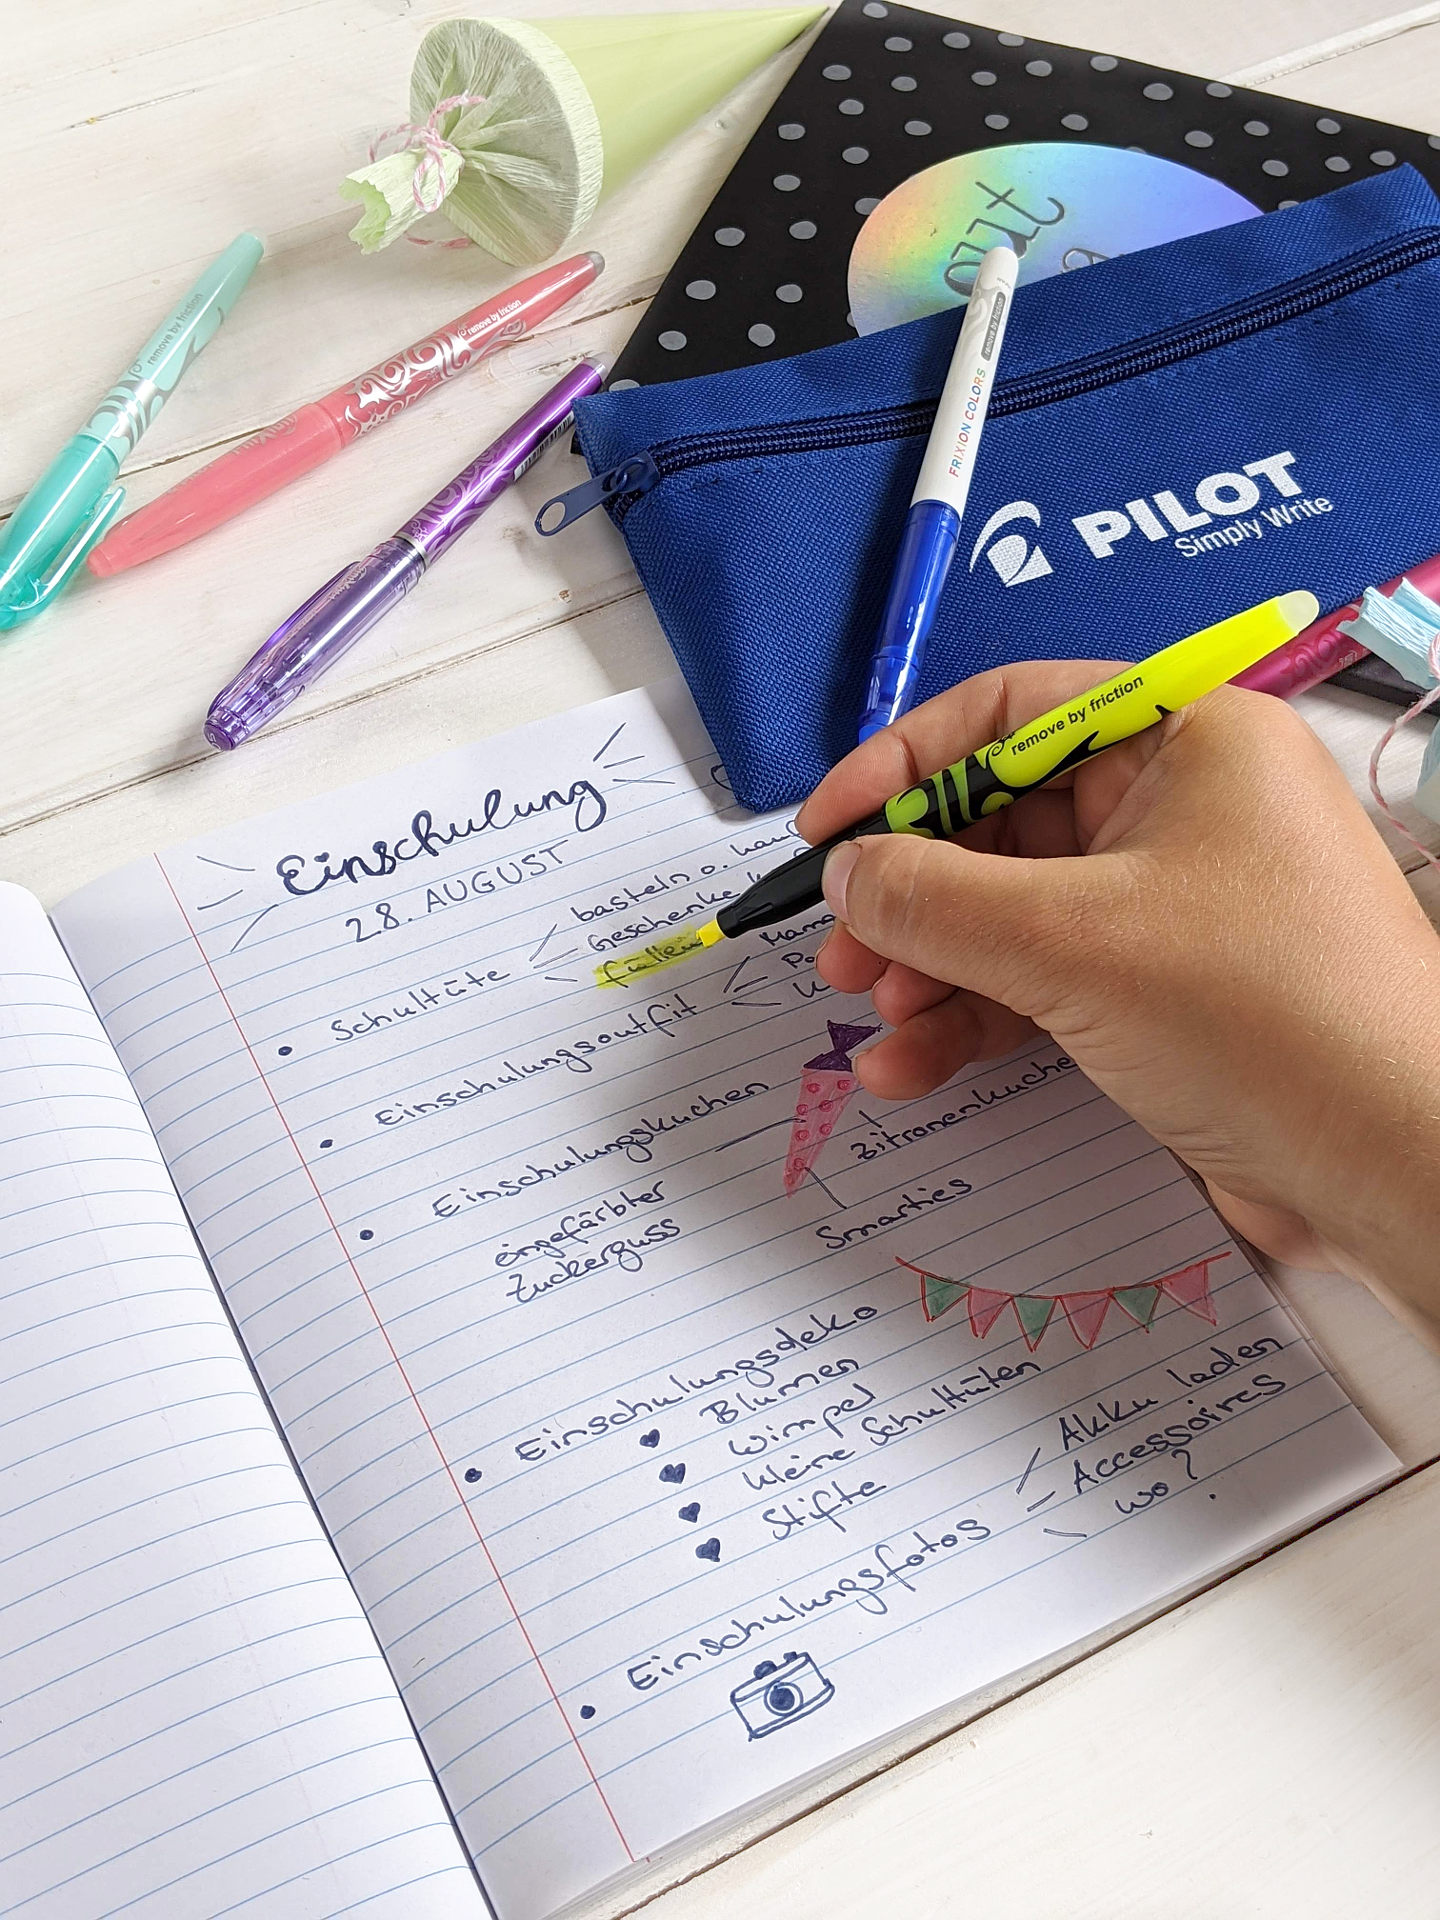 out
remove by friction
remove by friction
remove by friction
FRIXION COLORS
PILOT
Simply Write
remove by friction
Einschulung
28. AUGUST
• Schultüte
basteln o.
Geschenke
füllen
Mama
• Einschulungsoutfit
• Einschulungskuchen
eingefärbter
Zuckerguss
Zitronenkuchen
Smarties
• Einschulungsdeko
♥ Blumen
♥ Wimpel
♥ kleine Schultüten
♥ Stifte
• Einschulungsfotos
Akku laden
Accessoires
wo?